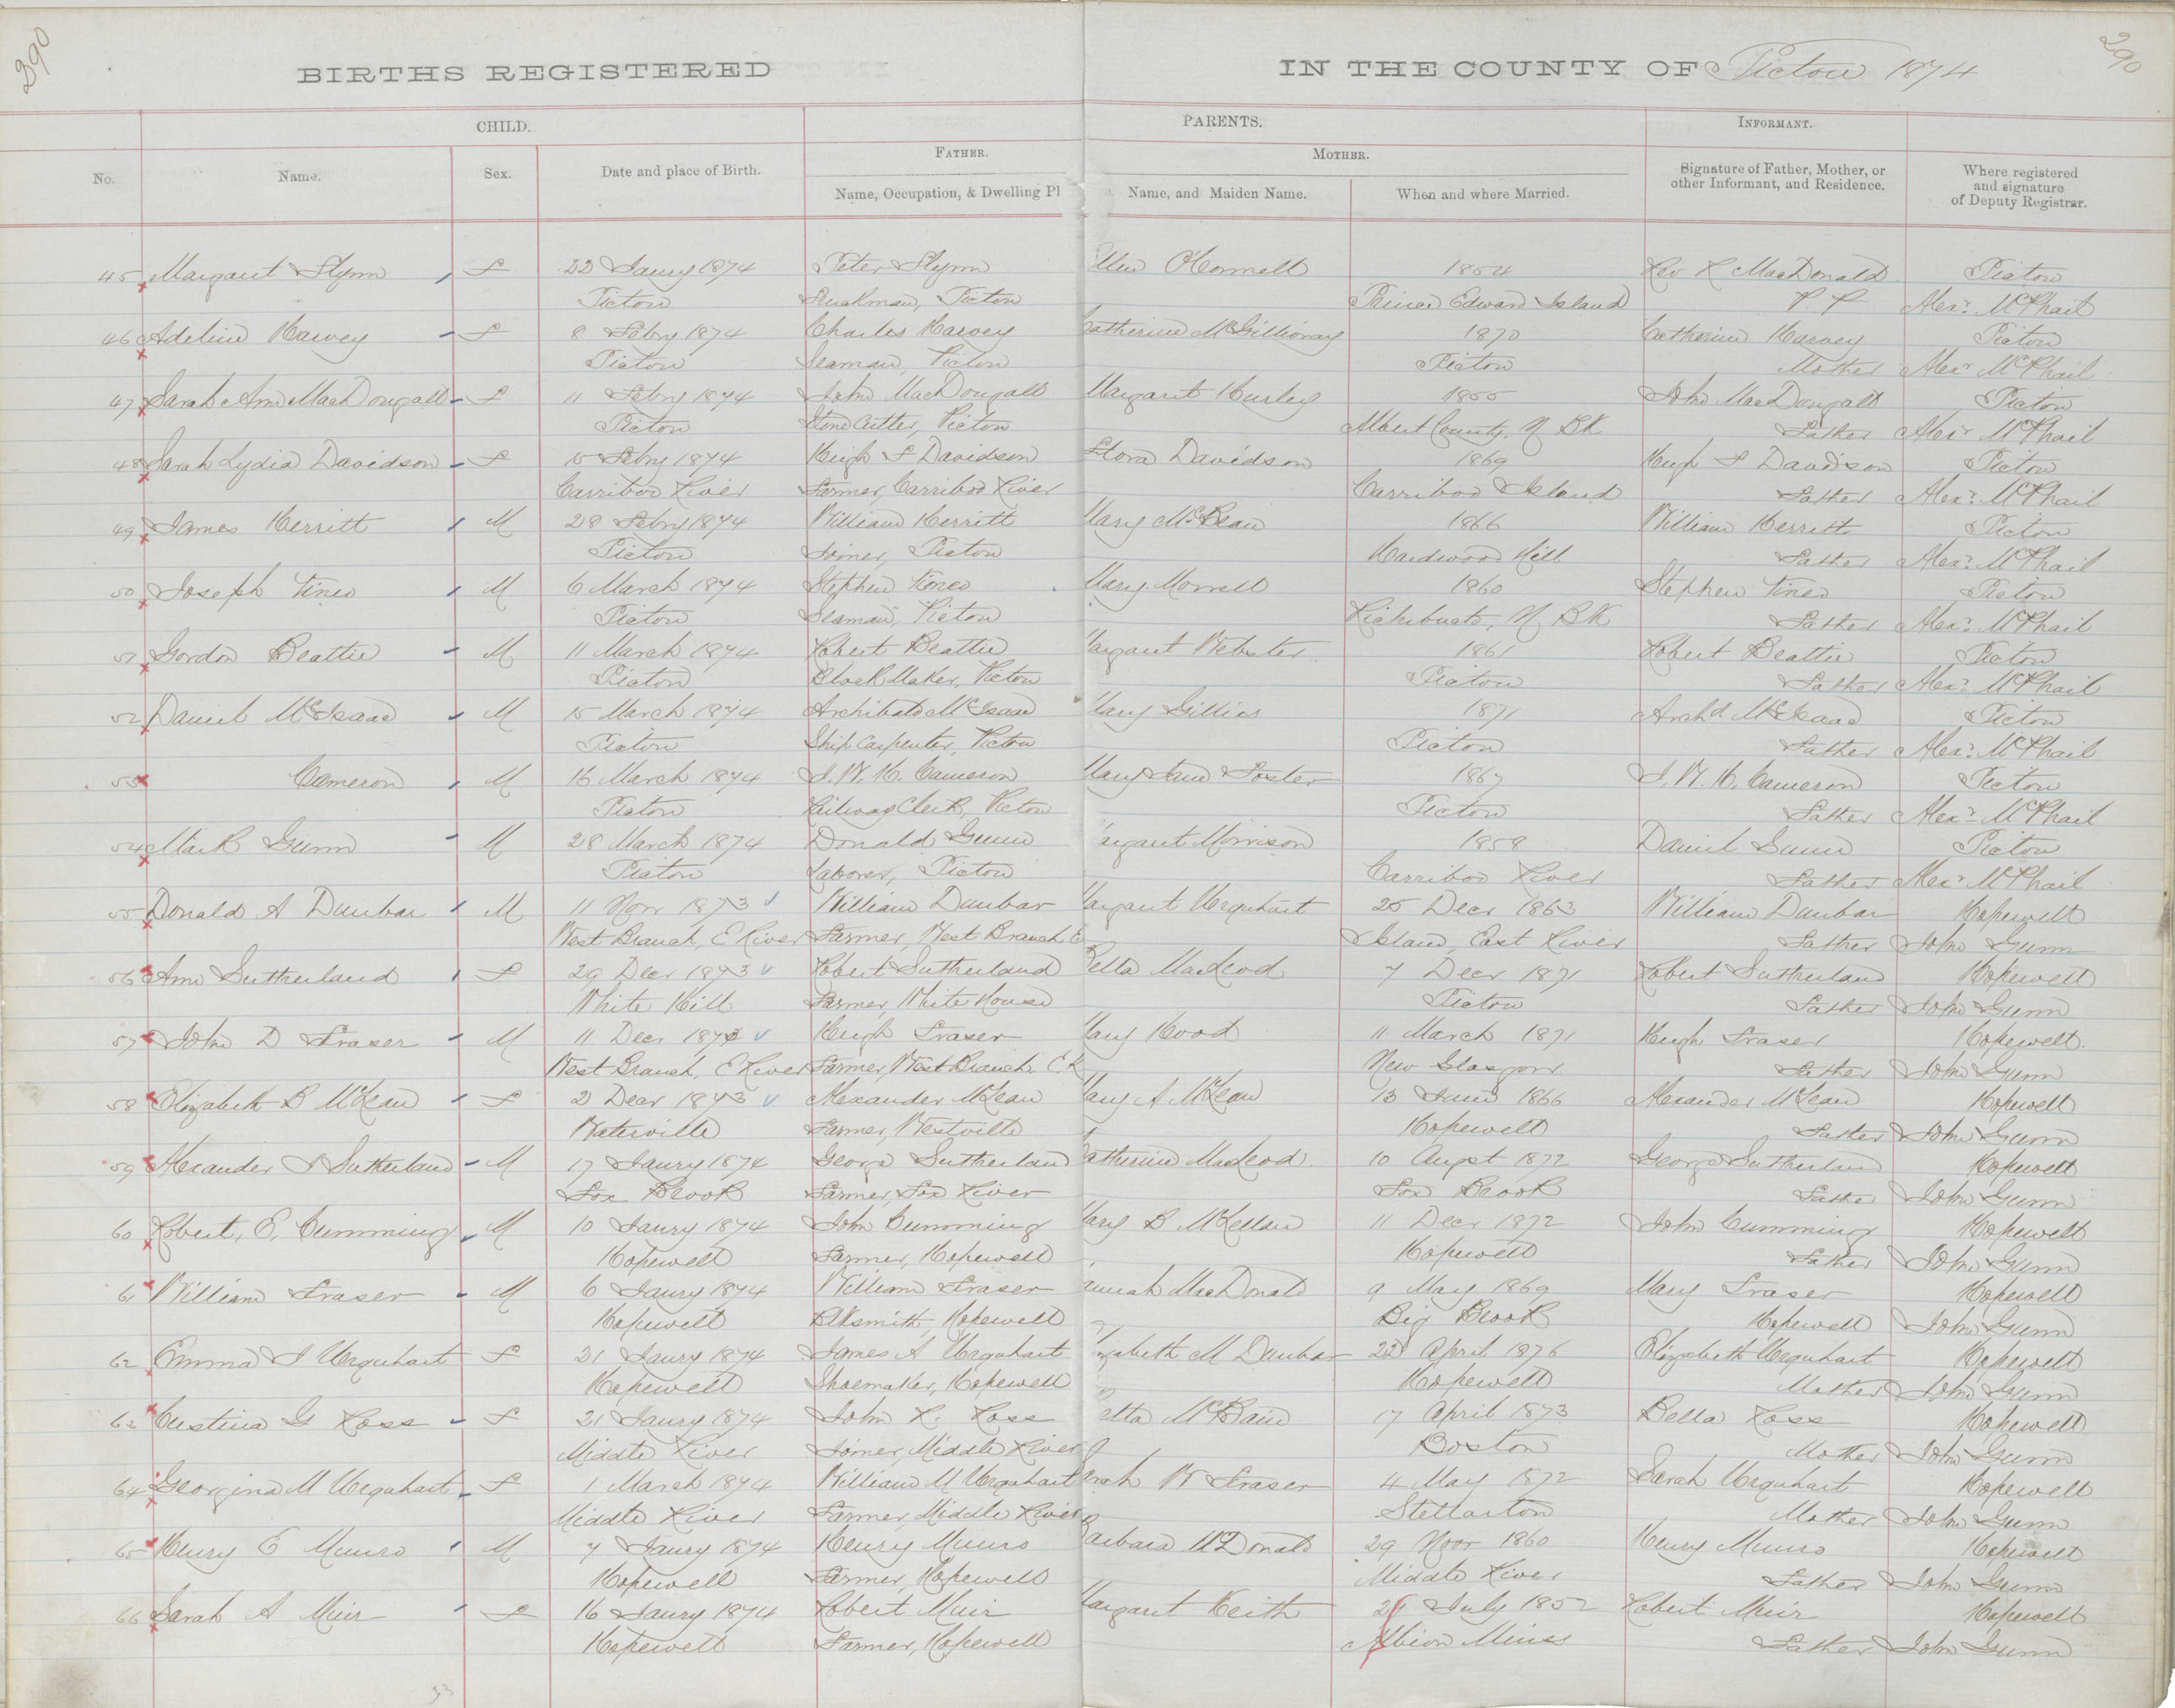 290
290
BIRTHS REGISTERED IN THE COUNTY OF Pictou 1874
CHILD. PARENTS. INFORMANT.
FATHER. MOTHER.
No. Name. Sex. Date and place of Birth. Name, Occupation, & Dwelling Pl Name, and Maiden Name. When and where Married. Signature of Father, Mother, or other Informant, and Residence. Where registered and signature of Deputy Registrar.
45 Margaret Flynn F 22 Jaury 1874 Peter Flynn Ellen O'Connell 1854 Rev R MacDonald Pictou
Pictou Pictou Prince Edward Island P. P Alexr McPhail
46 Adeline Harvey F 8 Febry 1874 Charles Harvey Catherine McGillivray 1870 Catherine Harvey Pictou
Pictou Seaman, Pictou Pictou Mother Alexr McPhail
47 Sarah Ann MacDougall F 11 Febry 1874 John MacDougall Margaret Hurley 1855 John MacDougall Pictou
Pictou Stone Cutter, Pictou Albert County, N BK Father Alexr McPhail
48 Sarah Lydia Davidson F 15 Febry 1874 Hugh F Davidson Flora Davidson 1869 Hugh F Davidson Pictou
Carriboo River Farmer, Carriboo River Carriboo Island Father Alexr McPhail
49 James Herritt M 28 Febry 1874 William Herritt Mary McBean 1866 William Herritt Pictou
Pictou Joiner, Pictou Hardwood Hill Father Alexr McPhail
50 Joseph Tineo M 6 March 1874 Stephen Tineo Mary Morrell 1860 Stephen Tineo Pictou
Pictou Seaman, Pictou Richibucto, N BK Father Alexr McPhail
51 Gordon Beattie M 11 March 1874 Robert Beattie argaret Webster 1861 Robert Beattie Pictou
Pictou Block Maker, Pictou Pictou Father Alexr McPhail
52 Daniel McIsaac M 15 March 1874 Archibald McIsaac Mary Gillies 1871 Archd McIsaac Pictou
Pictou Ship Carpenter, Pictou Pictou Father Alexr McPhail
53 Cameron M 16 March 1874 J. W. H. Cameron Mary Jane Foster 1867 J. W. H. Cameron Pictou
Pictou Railway Clerk, Pictou Pictou Father Alexr McPhail
54 Mark Gunn M 28 March 1874 Donald Gunn argaret Morrison 1858 Daniel Gunn Pictou
Pictou Laborer, Pictou Carriboo River Father Alexr McPhail
55 Donald A Dunbar M 11 Novr 1873 William Dunbar Margaret Urquhart 25 Decr 1863 William Dunbar Hopewell
West Branch, E River Farmer, West Branch E Island, East River Father John Gunn
56 Ann Sutherland F 29 Decr 1873 Robert Sutherland Bella MacLeod 7 Decr 1871 Robert Sutherland Hopewell
White Hill Farmer, White House Pictou Father John Gunn
57 John D Fraser M 11 Decr 1873 Hugh Fraser Mary Hood 11 March 1871 Hugh Fraser Hopewell.
West Branch, E River Farmer, West Branch E R New Glasgow Father John Gunn
58 Elizabeth B McLean F 2 Decr 1873 Alexander McLean Mary A McLean 13 June 1866 Alexander McLean Hopewell
Waterville Farmer, Westville Hopewell Father John Gunn
59 Alexander F Sutherland M 17 Jaury 1874 George Sutherland Catherine MacLeod 10 Augst 1872 George Sutherland Hopewell
Fox Brook Farmer, Fox River Fox Brook Father John Gunn
60 Robert, E, Cumming M 10 Jaury 1874 John Cumming Mary B McKellan 11 Decr 1872 John Cumming Hopewell
Hopewell Farmer, Hopewell Hopewell Father John Gunn
61 William Fraser M 6 Jaury 1874 William Fraser annah MacDonald 9 May 1869 Mary Fraser Hopewell
Hopewell Blksmith, Hopewell Big Brook Hopewell John Gunn
62 Emma J Urquhart F 21 Jaury 1874 James A Urquhart izabeth M Dunbar 22 April 1876 Elizabeth Urquhart Hopewell
Hopewell Shoemaker, Hopewell Hopewell Mother John Gunn
63 Custina G Ross F 21 Jaury 1874 John R. Ross ella McBain 17 April 1873 Bella Ross Hopewell
Middle River Joiner, Middle River Boston Mother John Gunn
64 Georgina M Urquhart F 1 March 1874 William M Urquhart Sarah W Fraser 4 May 1872 Sarah Urquhart Hopewell
Middle River Farmer, Middle River Stellarton Mother John Gunn
65 Henry E Munro M 7 Jaury 1874 Henry Munro Barbara McDonald 29 Novr 1860 Henry Munro Hopewell
Hopewell Farmer, Hopewell Middle River Father John Gunn
66 Sarah A Muir F 16 Jaury 1874 Robert Muir Margaret Keith 29 July 1852 Robert Muir Hopewell
Hopewell Farmer, Hopewell Albion Mines Father John Gunn